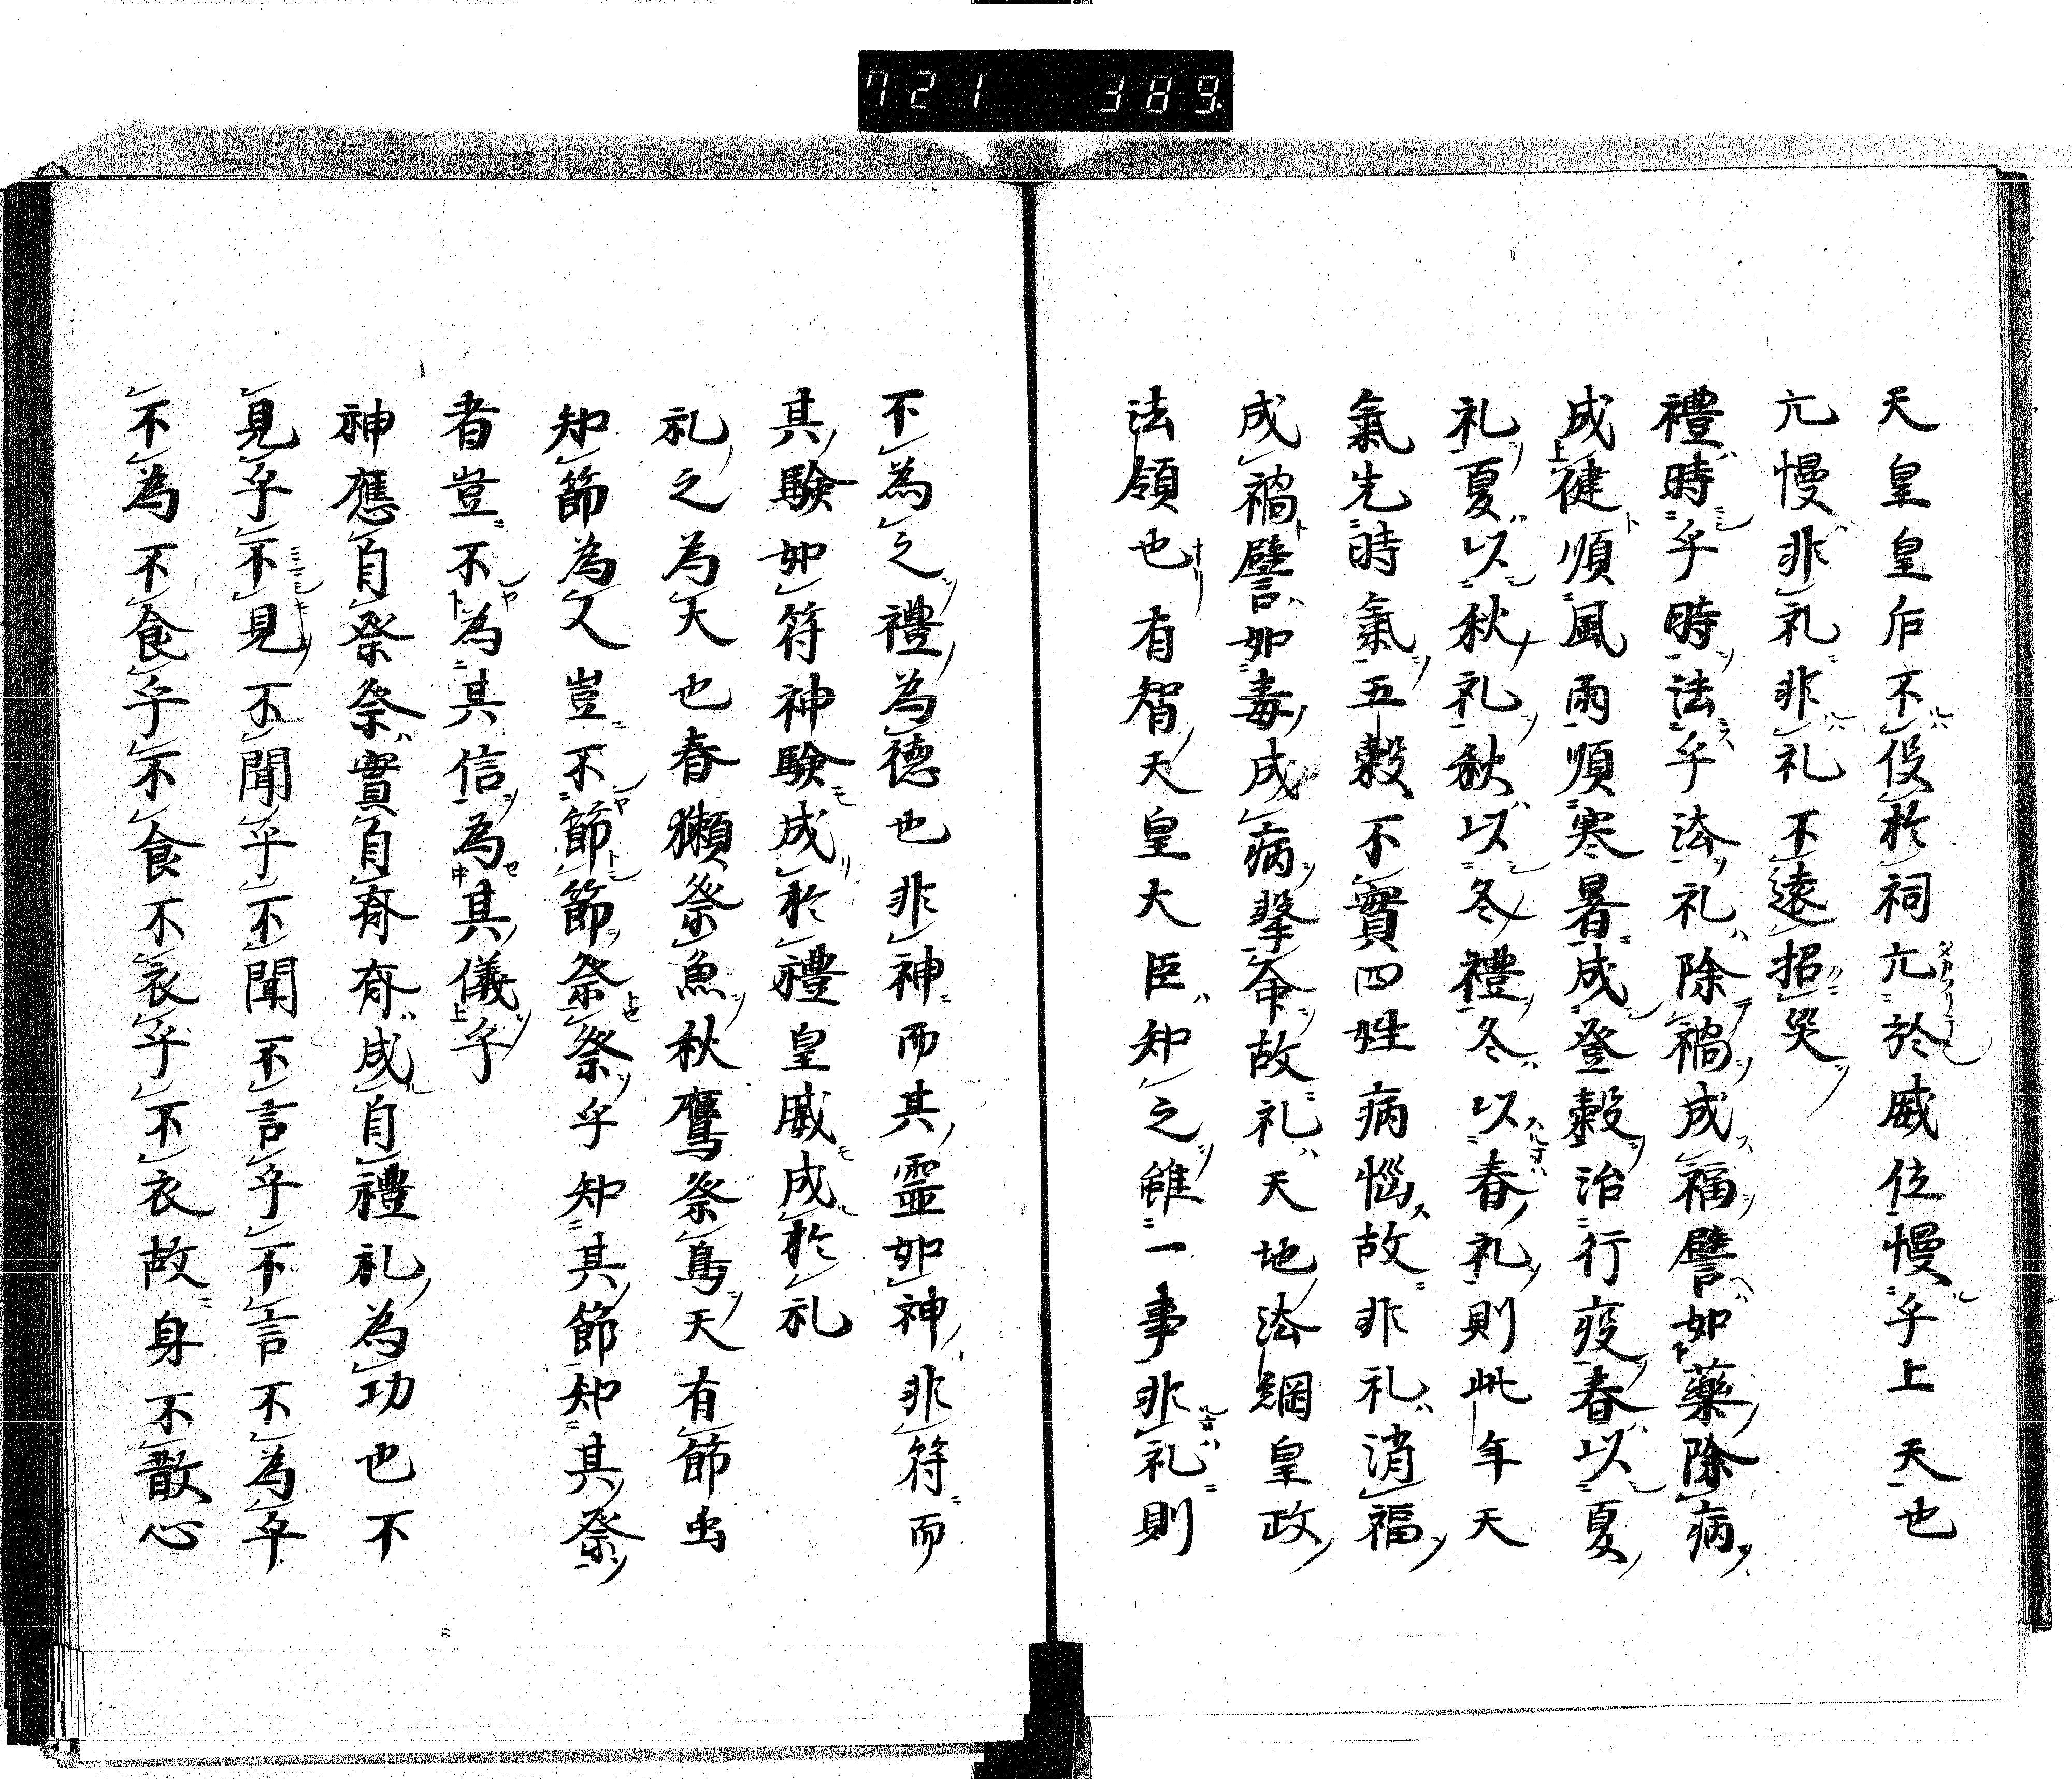 721 389
天皇皇后不伇於祠亢於威位慢乎上天也
亢慢非礼非礼不遠招災
禮時乎時法乎法礼除禍成福譬如藥除病
成健順風雨順寒暑成登穀治行疫春以夏
礼夏以秋礼秋以冬禮冬以春礼則此年天
氣先時氣五穀不實四姓病惱故非礼消福
成禍譬如毒成病撃命故礼天地法綱皇政
法領也有智天皇大臣知之雖一事非礼則
不為之禮為德也非神而其靈如神非符而
其驗如符神驗成於禮皇威成於礼
礼之為大也春獺祭魚秋鷹祭鳥天有節虫
知節為人豈不節節祭祭乎知其節知其祭
者豈不為其信為其儀乎
神應自祭祭實自齊齊成自禮礼為功也不
見乎不見不聞乎不聞不言乎不言不為乎
不為不食乎不食不衣乎不衣故身不散心